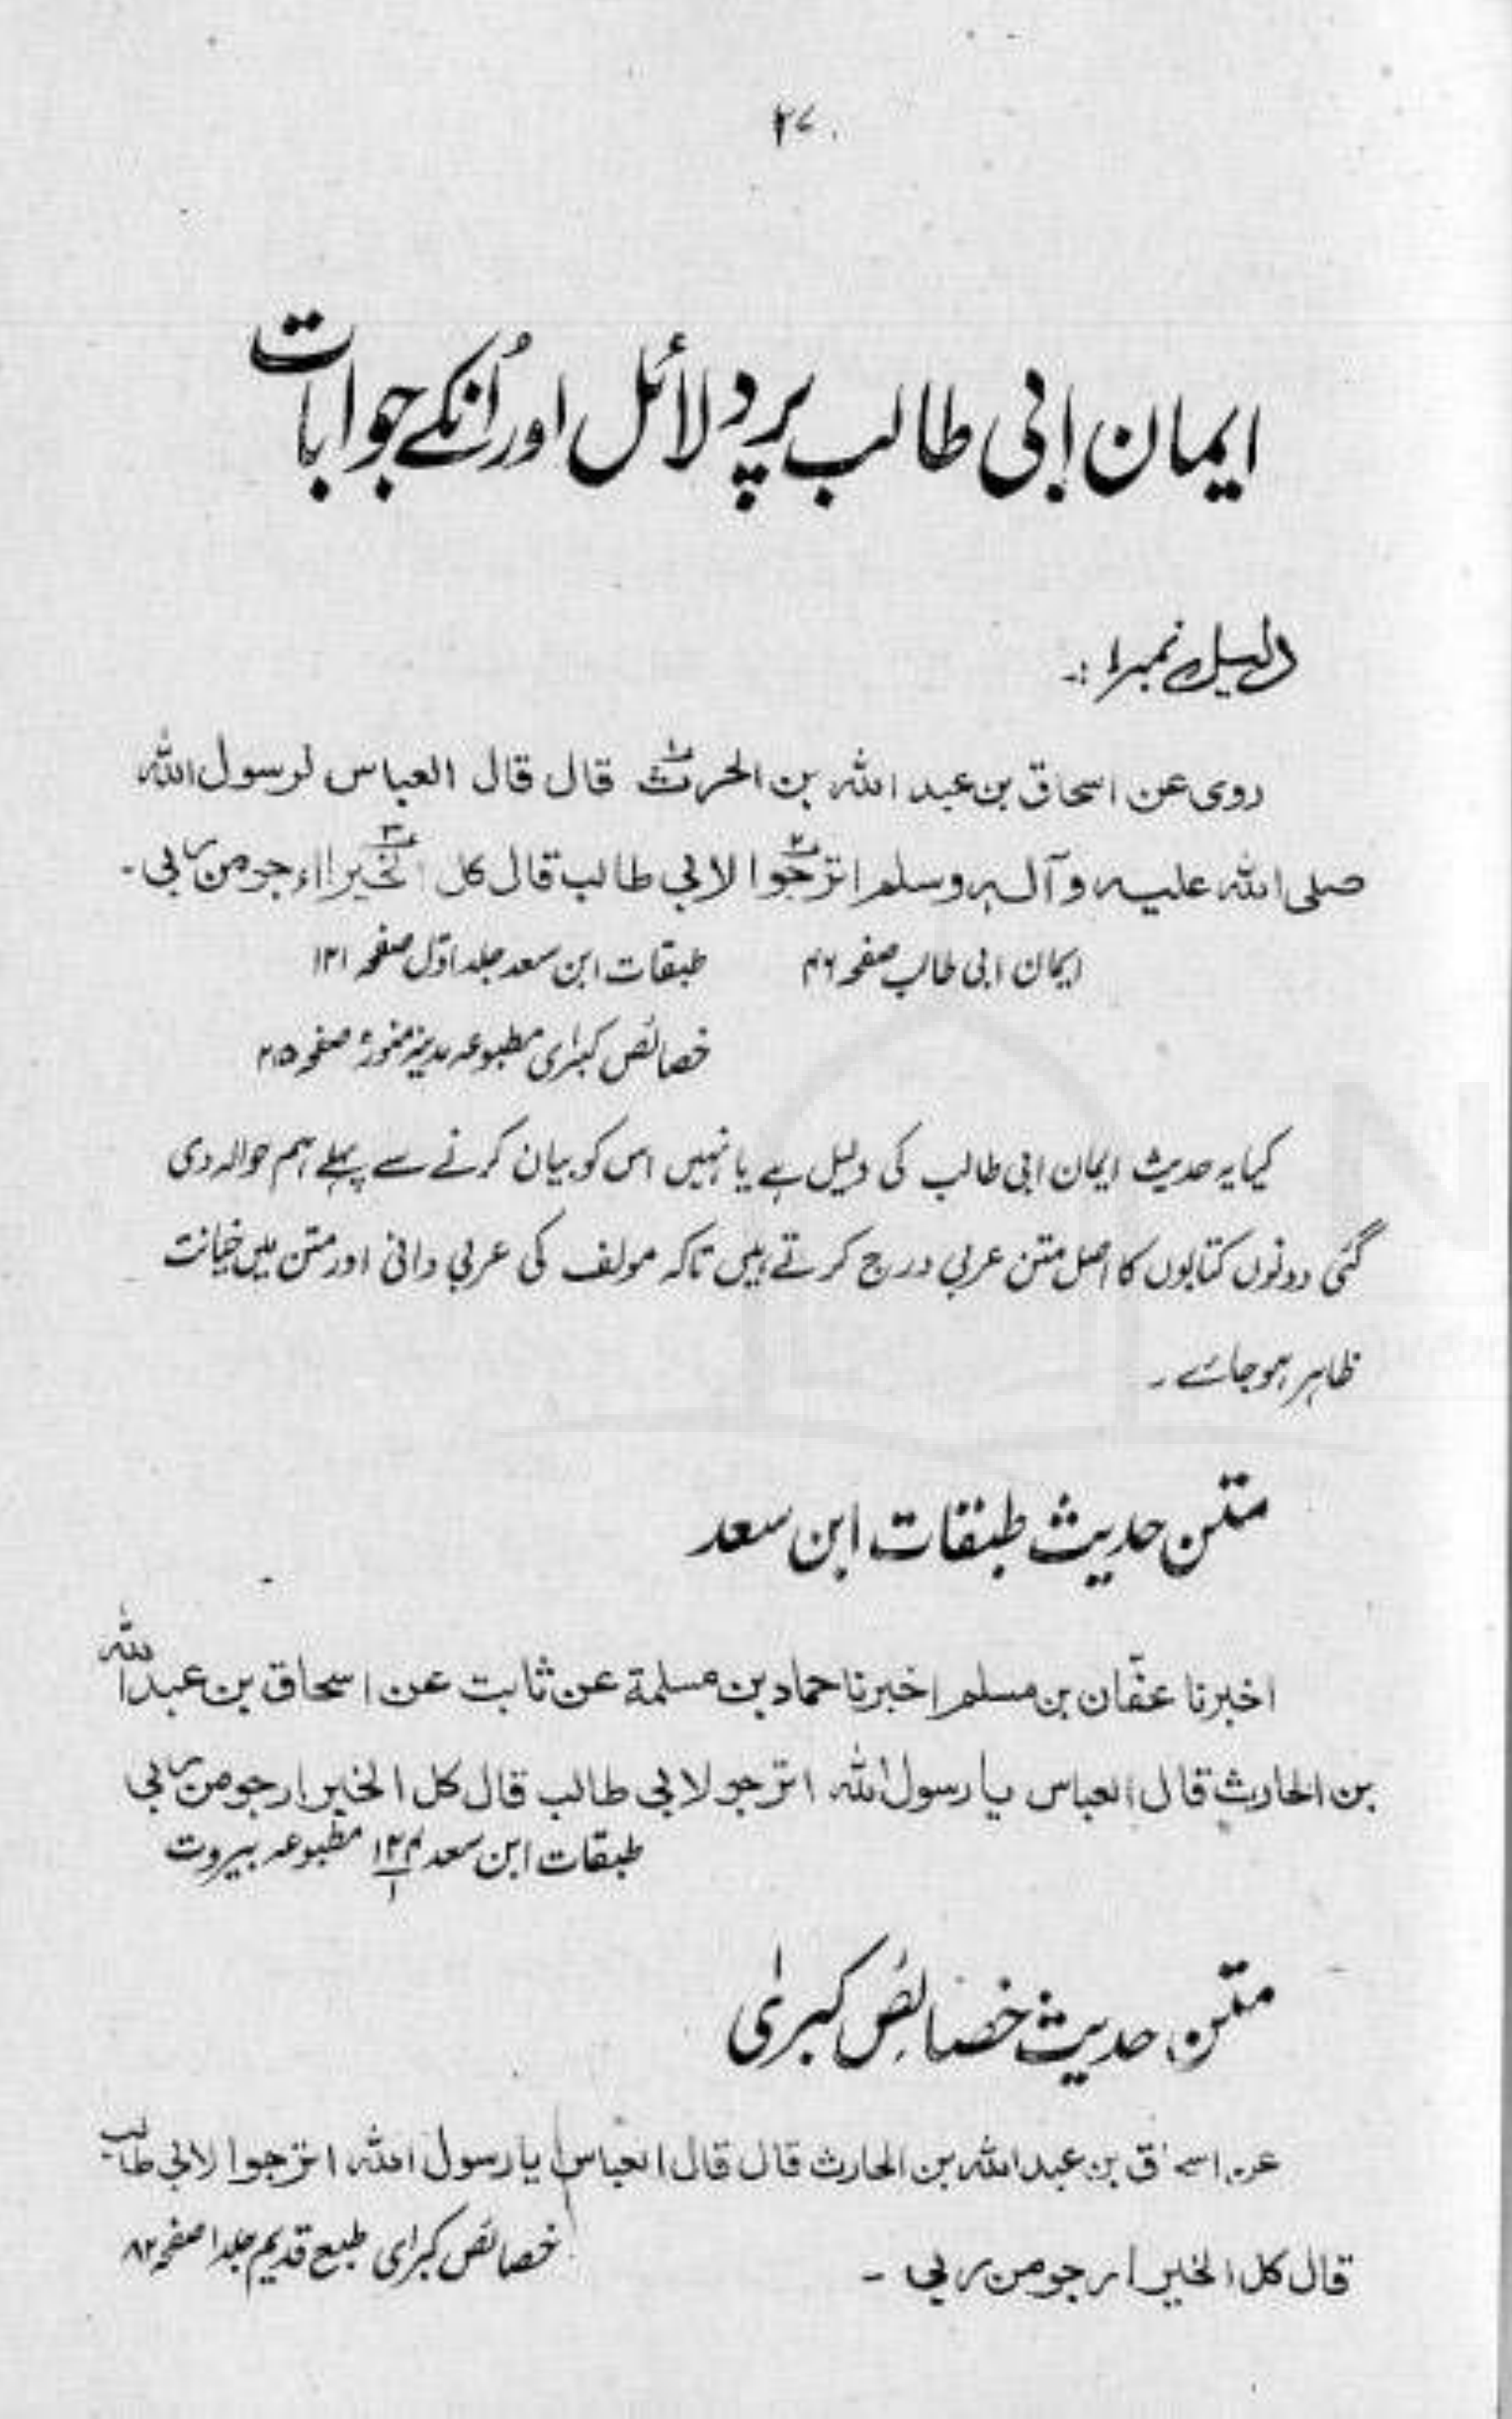 ۲۷
ایمان ابی طالب پر دلائل اور اُنکے جوابات
دلیل نمبر ۱ :۔
روی عن اسحاق بن عبد اللہ بن الحرث۱ قال قال العباس لرسول اللہ
صلی اللہ علیہ وآلہ وسلم اترجوا۲ لابی طالب قال کل لخیر۳ اارجو من ربی۔
ایمان ابی طالب صفحہ ۴۶ طبقات ابن سعد جلد اوّل صفحہ ۱۲۱
خصائص کبرٰی مطبوعہ مدینہ منورہ صفحہ ۲۱۵
کیا یہ حدیث ایمان ابی طالب کی دلیل ہے یا نہیں اس کو بیان کرنے سے پہلے ہم حوالہ دی
گئی دونوں کتابوں کا اصل متن عربی درج کرتے ہیں تاکہ مولف کی عربی دانی اور متن میں خیانت
ظاہر ہو جائے ۔
متن حدیث طبقات ابن سعد
اخبرنا عفّان بن مسلم اخبرنا حماد بن مسلمة عن ثابت عن اسحاق بن عبد اللہ
بن الحارث قال العباس یا رسول اللہ اترجو لابی طالب قال کل الخیر ارجو من ربی
طبقات ابن سعد ۱۲۴/۱ مطبوعہ بیروت
متن حدیث خصائص کبرٰی
عن اسحٰق بن عبد اللہ بن الحارث قال قال العباس یا رسول اللہ اترجوا لابی طالب
قال کل الخیر ارجو من ربی ۔ خصائص کبرٰی طبع قدیم جلد ۱ صفحہ ۸۲